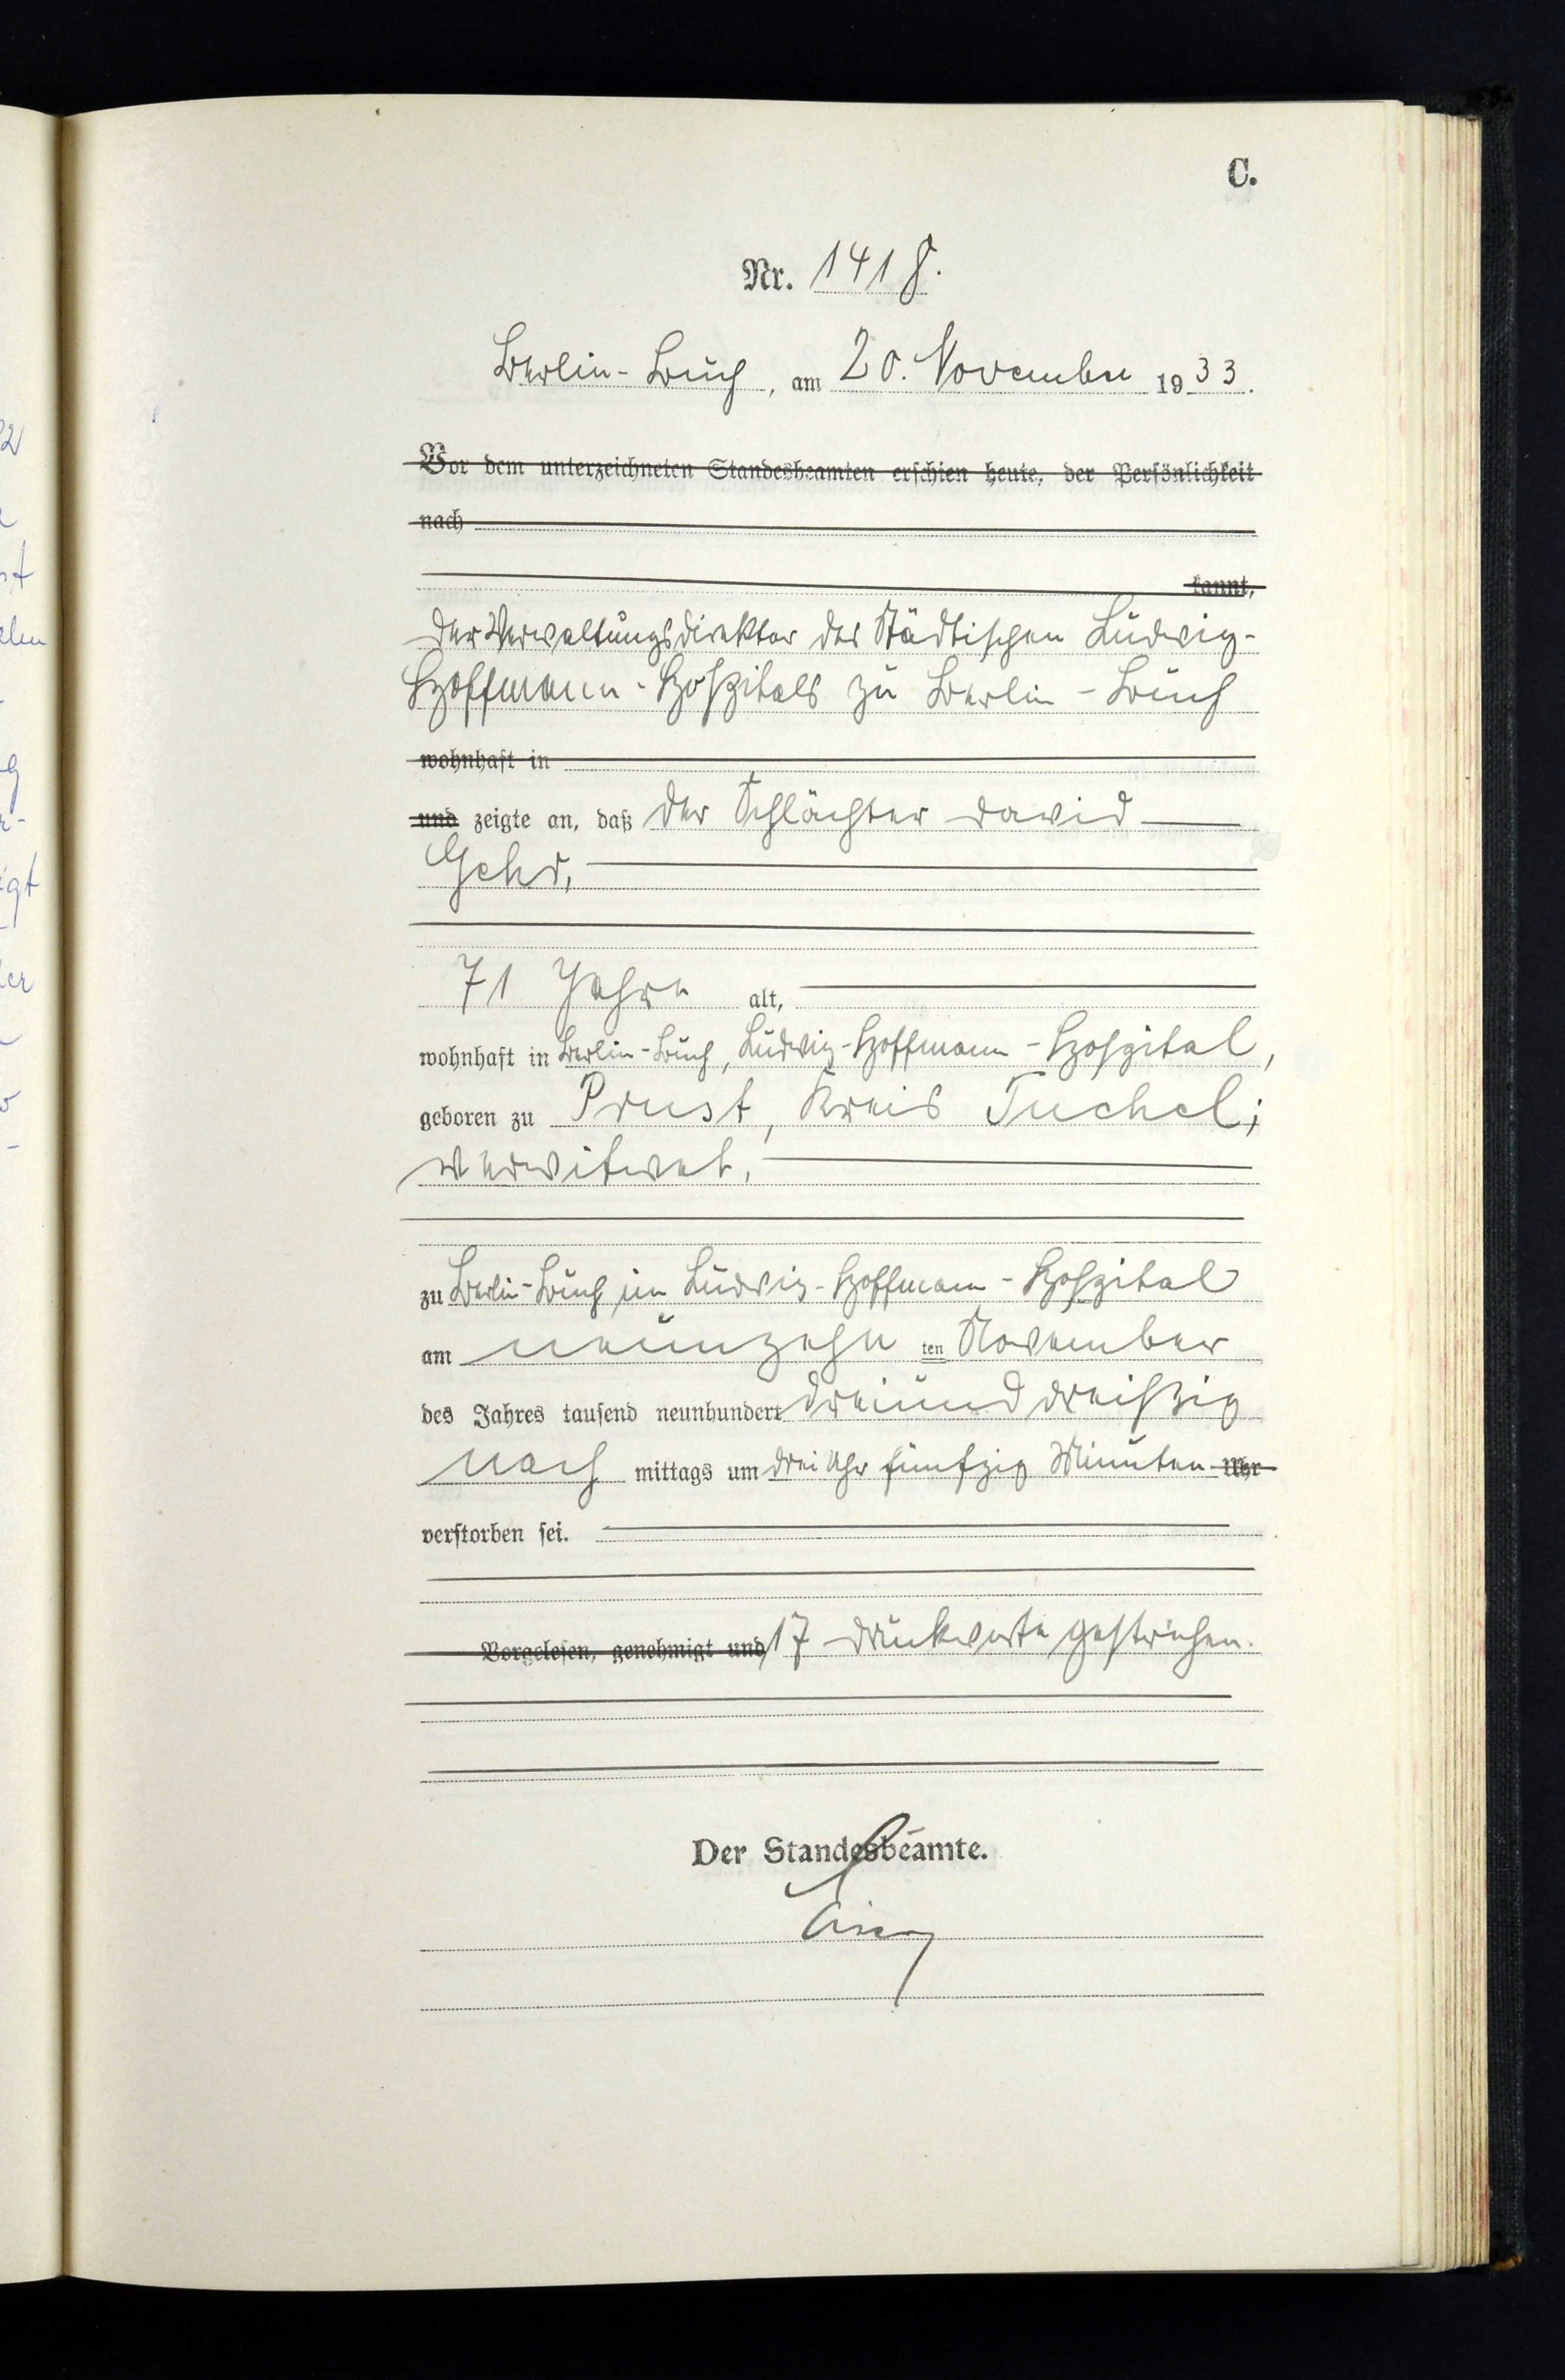 C.
Nr. 1418.
Berlin-Buch, am 20. November 1933.
Vor dem unterzeichneten Standesbeamten erschien heute, der Persönlichkeit
nach
kannt,
Der Verwaltungsdirektor des Städtischen Ludwig-
Hoffmann-Hospitals zu Berlin-Buch
wohnhaft in
und zeigte an, daß der Schlächter David
Gehr,
71 Jahre alt,
wohnhaft in Berlin-Buch, Ludwig-Hoffmann-Hospital,
geboren zu Prust, Kreis Tuchel;
verwitwet,
zu Berlin-Buch im Ludwig-Hoffmann-Hospital
am neunzehn ten November
des Jahres tausend neunhundert dreiunddreißig
nach mittags um drei Uhr fünfzig Minuten Uhr
verstorben sei.
Vorgelesen, genehmigt und 17 Druckworte gestrichen.
Der Standesbeamte.